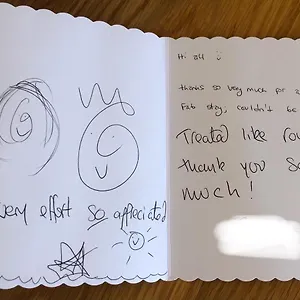 very effort so appreciated
Hi
thanks so very much for a
Fab stay, couldn't be
Treated like
thank you so
much!